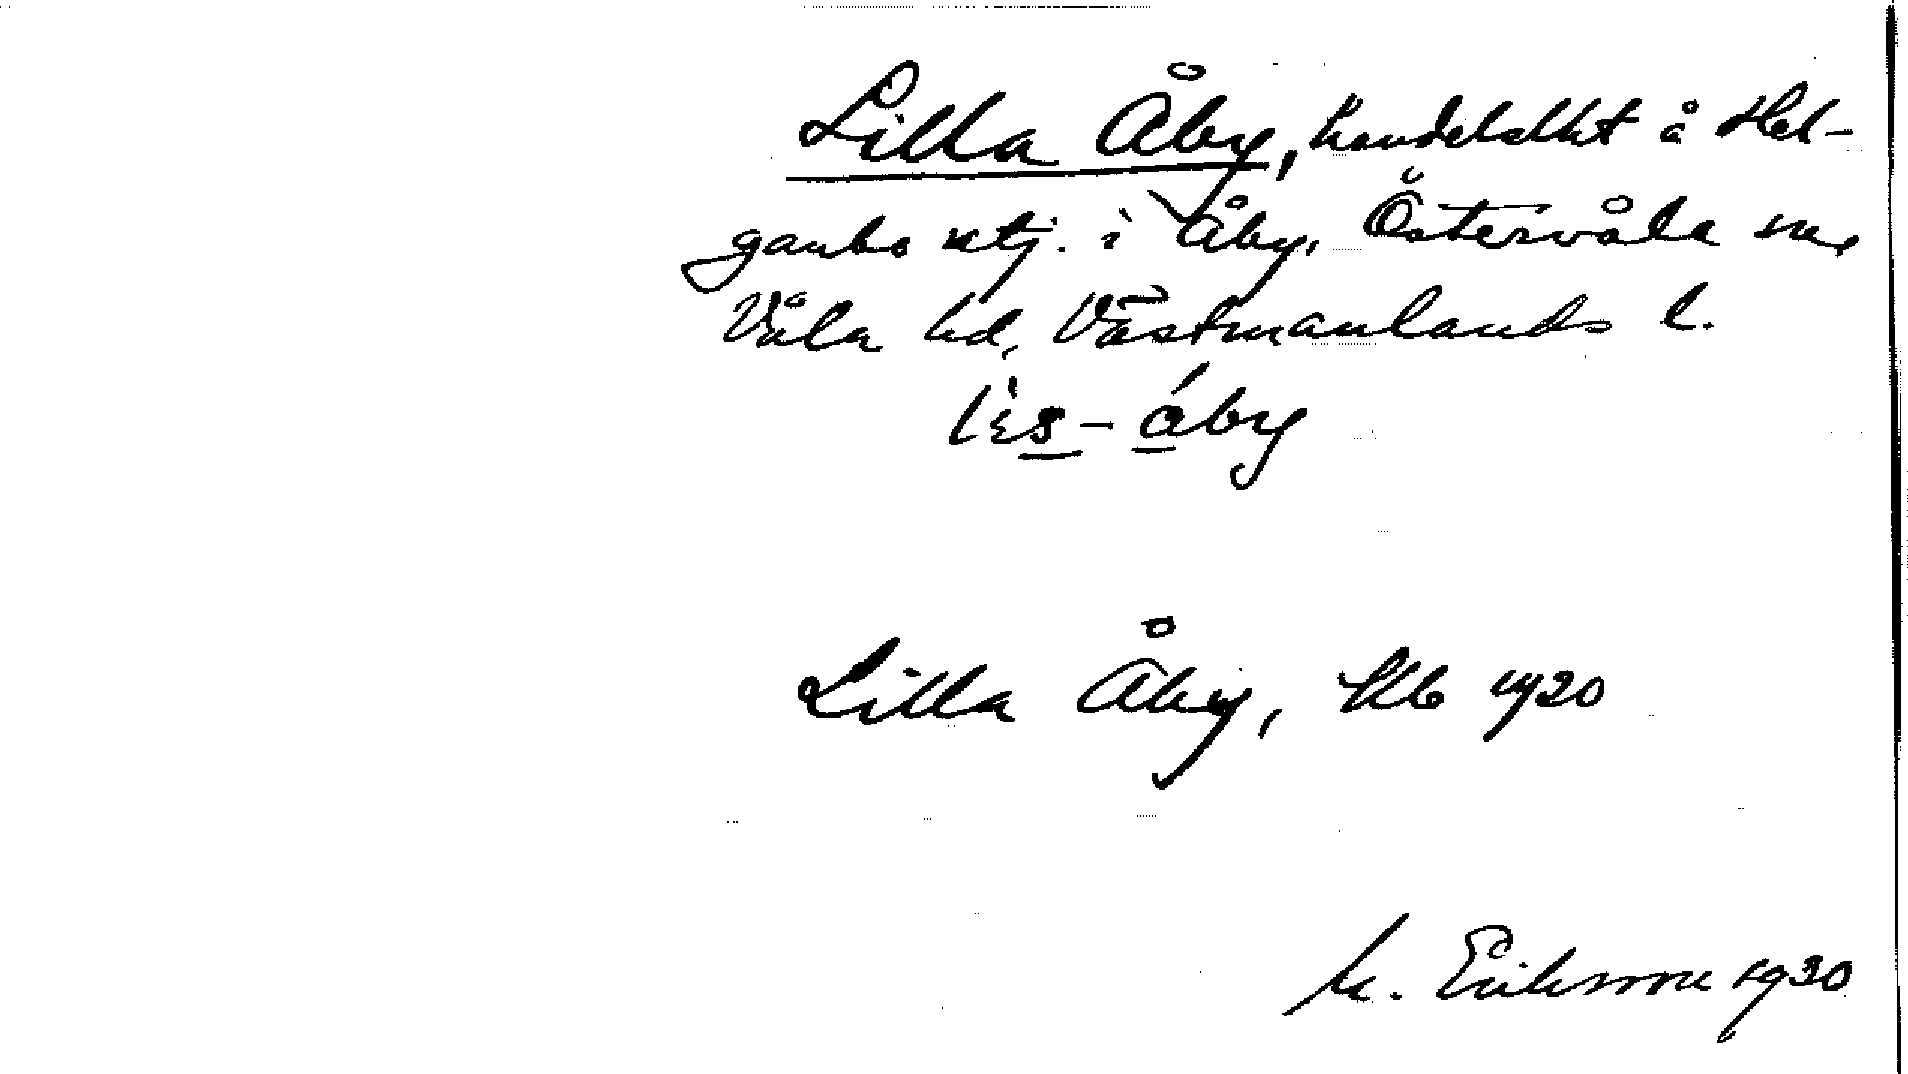 Lilla Åby, handelslht å Hel-
ganbo utj. i Åby, Östervåla sn,
Våla hd, Västmanlands l.
lìs-åby
Lilla Åby, Kb 1920
M. Eriksson 1930